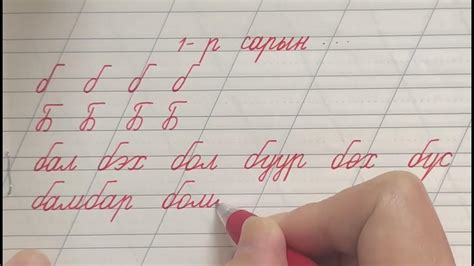 1-р сарын ...
б б б б
Б Б Б Б
бал бэх бол буур бөх бүс
бамбар